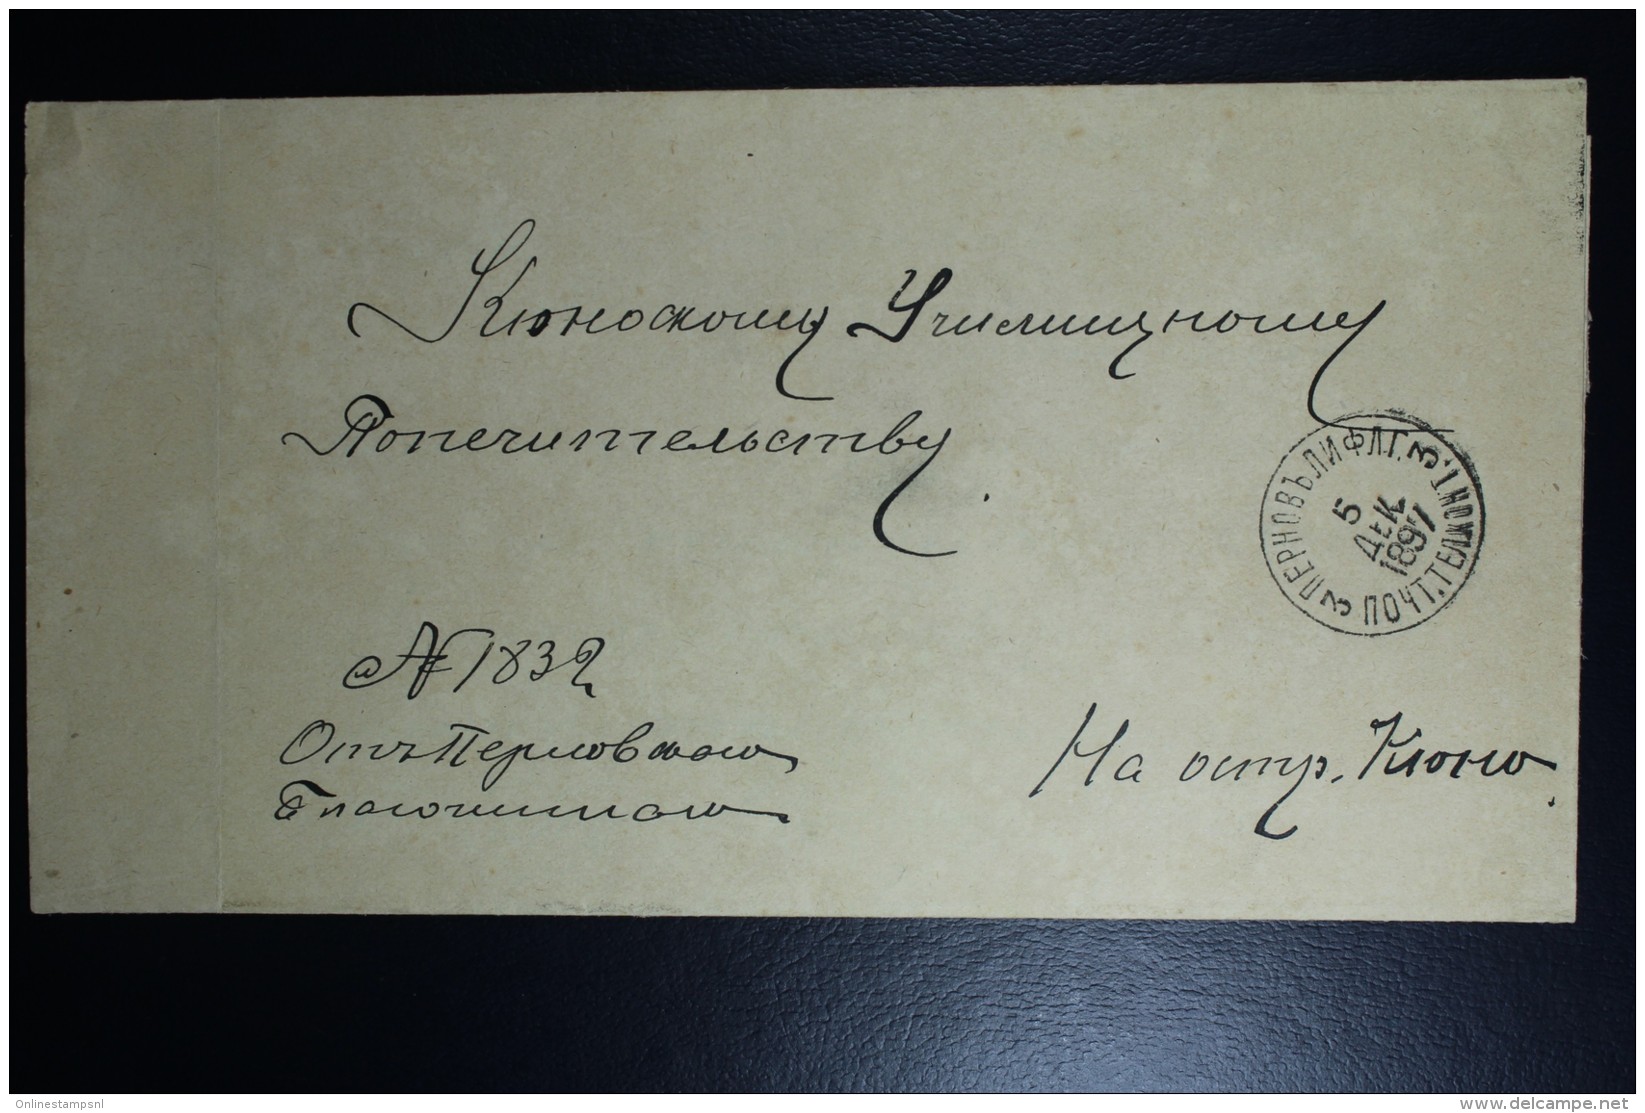 Кюноскому Училищному
Попечительству.
ПЕРНОВЪ ЛИФЛ.Г. 3
5
ДЕК.
1897
3 ПОЧТ.ТЕЛ.КОНТ.
№ 1832
Отъ Перновскаго
Благочиннаго
На остр. Кюно.
Onlinestampsnl
www.delcampe.net